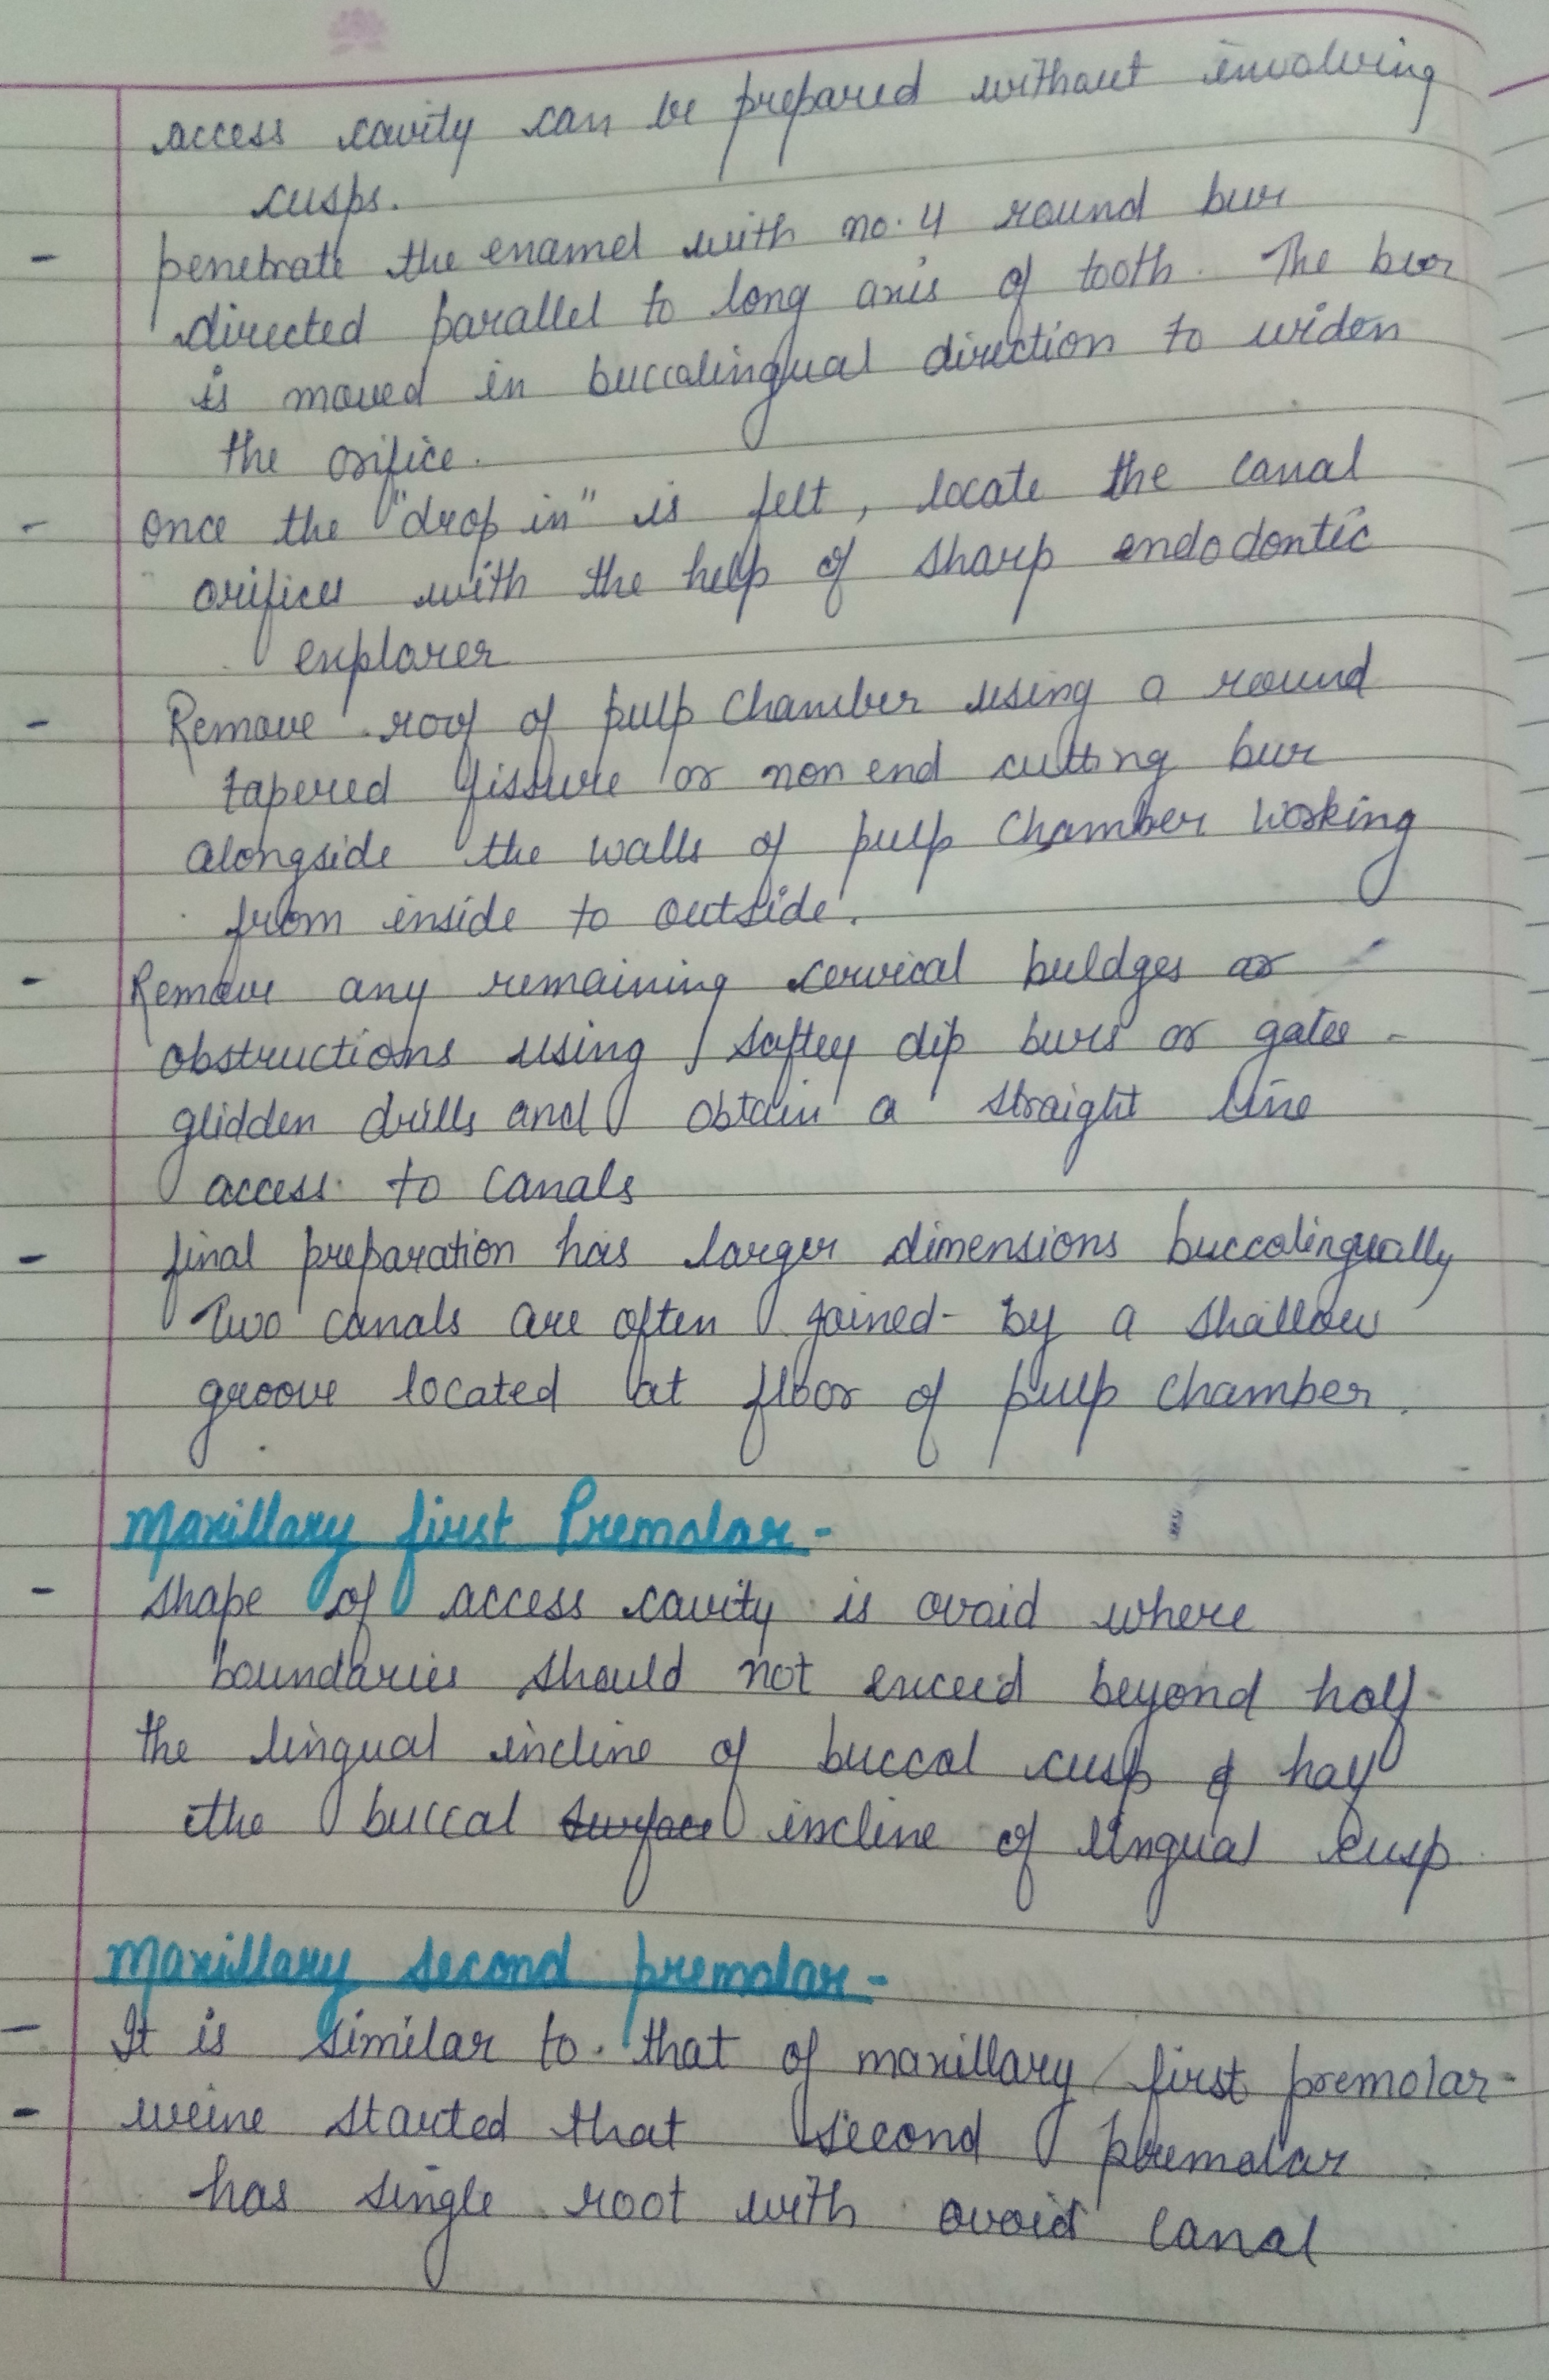 access cavity can be prepared without involving
cusps.
- penetrate the enamel with no. 4 round bur
directed parallel to long axis of tooth. The bur
is moved in buccolingual direction to widen
the orifice.
- once the "drop in" is felt, locate the canal
orifices with the help of sharp endodontic
explorer
- Remove roof of pulp chamber using a round
tapered fissure or non end cutting bur
alongside the walls of pulp chamber working
from inside to outside.
- Remove any remaining cervical buldges or
obstructions using saftey dip burs or gates -
glidden drills and obtain a straight line
access to canals
- final preparation has larger dimensions buccolingually
Two canals are often joined by a shallow
groove located at floor of pulp chamber.
Maxillary first Premolar -
- shape of access cavity is ovoid where
boundaries should not exceed beyond half
the lingual incline of buccal cusp & half
the buccal surface incline of lingual cusp
Maxillary second premolar -
- It is similar to that of maxillary first premolar-
- weine started that second premolar
has single root with ovoid canal